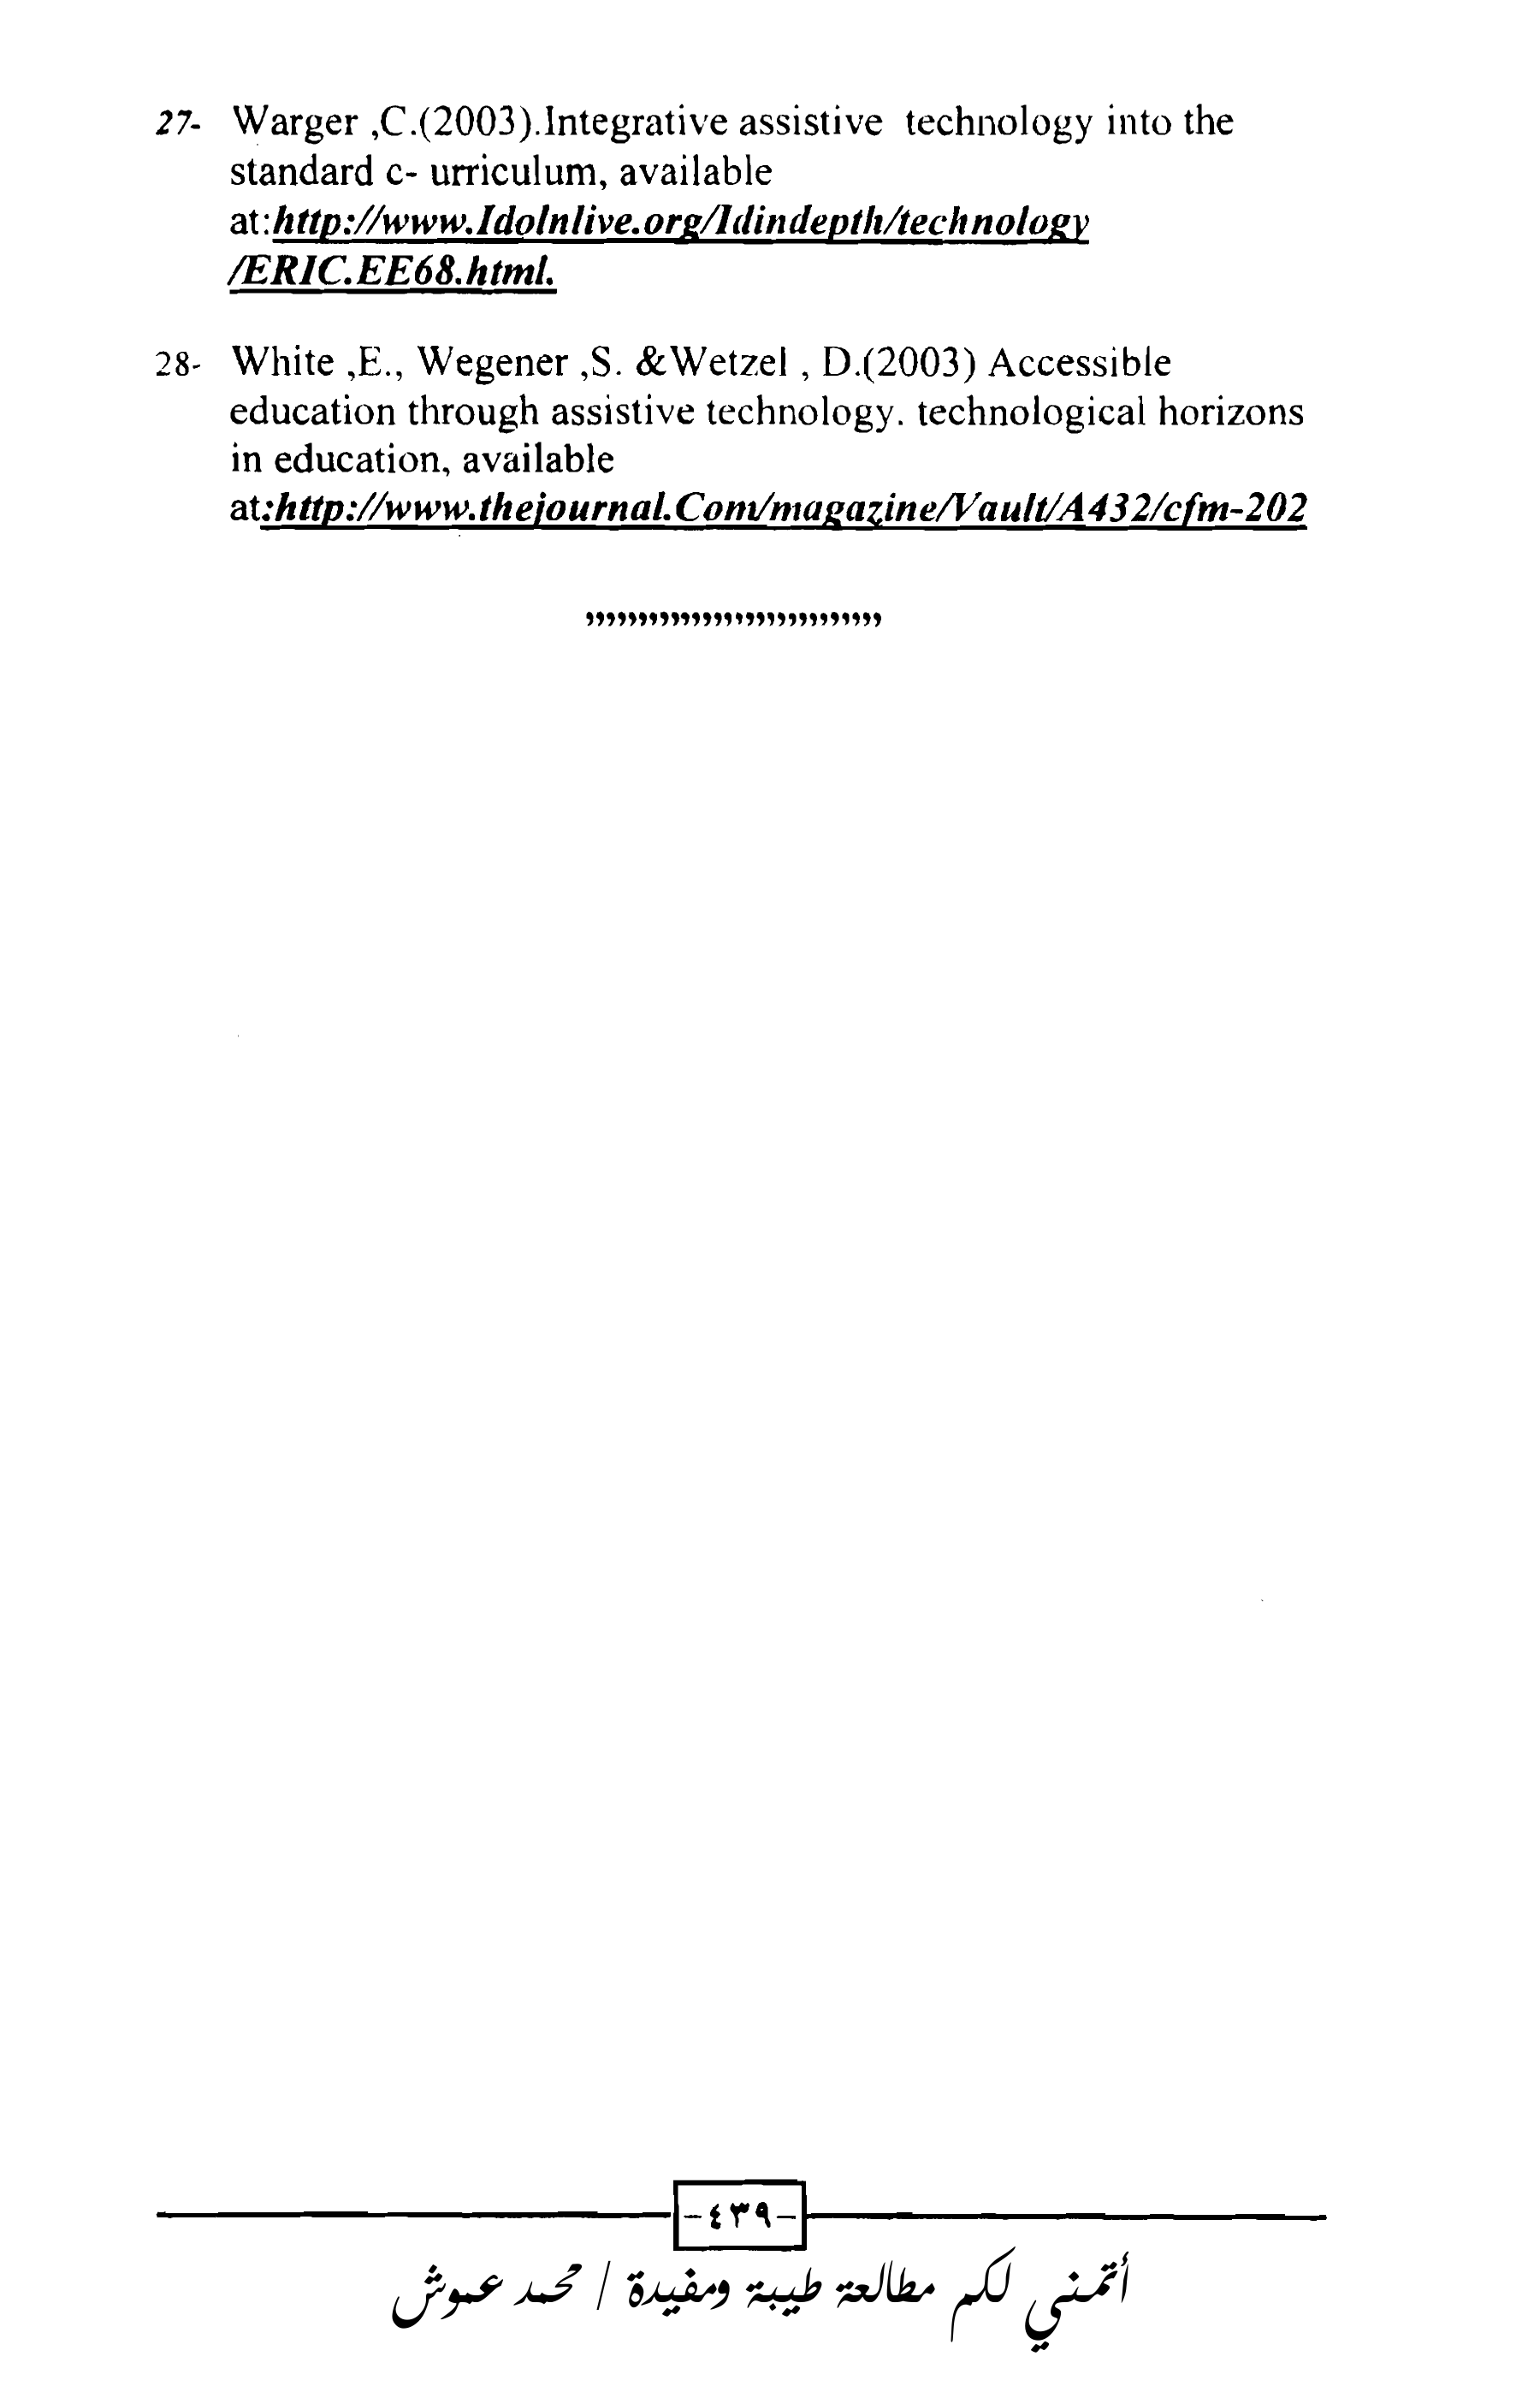 27- Warger ,C.(2003).Integrative assistive technology into the
standard c- urriculum, available
at:http://www.Idolnlive.org/Idindepth/technology
/ERIC.EE68.html.
28- White ,E., Wegener ,S. &Wetzel , D.(2003) Accessible
education through assistive technology. technological horizons
in education, available
at:http://www.thejournal.Com/magazine/Vault/A432/cfm-202
,,,,,,,,,,,,,,,,,,,,,,,,,,,,
-٤٣٩-
أتمني لكم مطالعة طيبة ومفيدة / محمد عموش